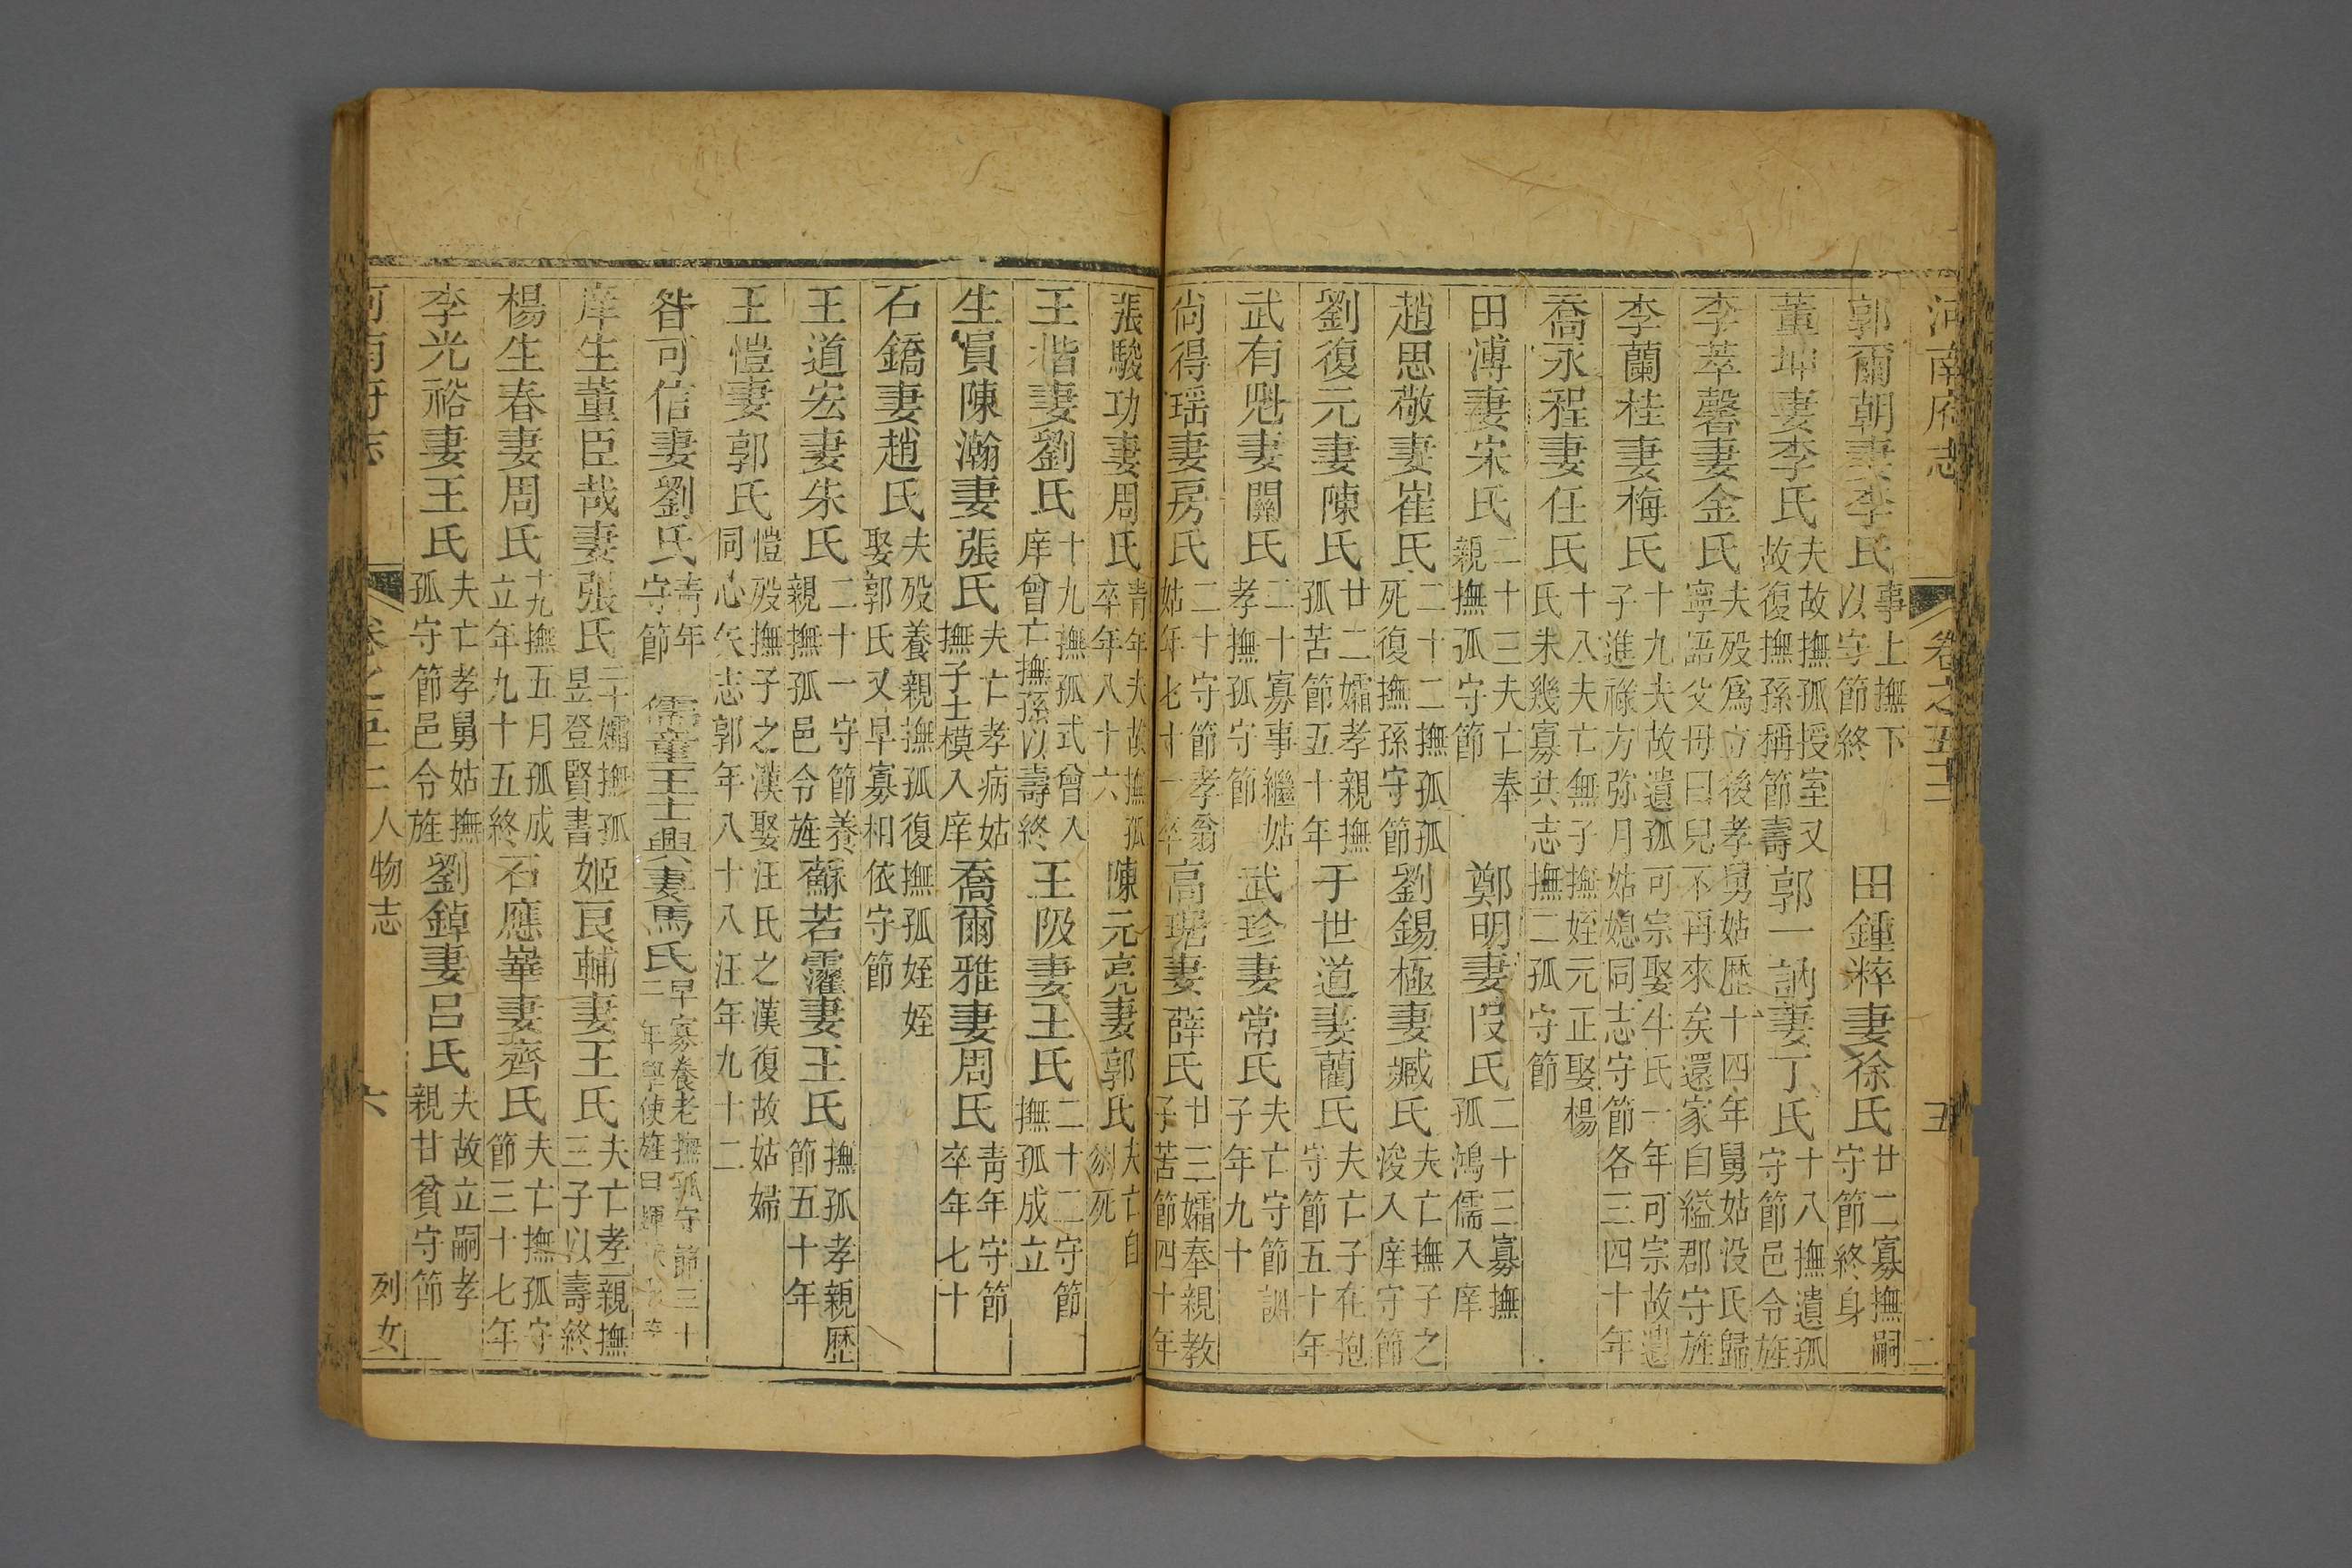 河南府志 卷之五十二 五
郭爾朝妻李氏 事上撫下以守節終 田鍾粹妻徐氏 廿二寡撫嗣守節終身
董坤妻李氏 夫故撫孤授室又故復撫孫稱節壽 郭一訥妻丁氏 十八撫遺孤守節邑令旌
李萃馨妻金氏 夫殁爲立後孝舅姑歴十四年舅姑没氏歸寧語父母曰兒不再來矣還家自縊郡守旌
李蘭桂妻梅氏 十九夫故遺孤可宗娶牛氏一年可宗故遺子進祿方弥月姑媳同志守節各三四十年
喬永程妻任氏 十八夫亡無子撫姪元正娶楊氏未幾寡共志撫二孤守節
田溥妻宋氏 二十三夫亡奉親撫孤守節 鄭明妻段氏 二十三寡撫孤鴻儒入庠
趙思敬妻崔氏 二十二撫孤孤死復撫孫守節 劉錫極妻臧氏 夫亡撫子之浚入庠守節
劉復元妻陳氏 廿二孀孝親撫孤苦節五十年 于世道妻藺氏 夫亡子在抱守節五十年
武有魁妻關氏 二十寡事繼姑孝撫孤守節 武珍妻常氏 夫亡守節訓子年九十
尙得瑶妻房氏 二十守節孝翁姑年七十一卒 高琚妻薛氏 廿三孀奉親教子苦節四十年
張駿功妻周氏 青年夫故撫孤卒年八十六 陳元亮妻郭氏 夫亡自縊死
王楷妻劉氏 十九撫孤式曾入庠曾亡撫孫以壽終 王阪妻王氏 二十二守節撫孤成立
生員陳瀚妻張氏 夫亡孝病姑撫子士模入庠 喬爾雅妻周氏 青年守節卒年七十
石鐈妻趙氏 夫殁養親撫孤復撫孤姪姪娶郭氏又早寡相依守節
王道宏妻朱氏 二十一守節養親撫孤邑令旌 蘇若灌妻王氏 撫孤孝親歴節五十年
王愷妻郭氏 愷殁撫子之漢娶汪氏之漢復故姑婦同心矢志郭年八十八汪年九十二
昝可信妻劉氏 青年守節 儒童王士興妻馬氏 早寡養老撫孤守節三十二年學使旌曰
庠生董臣哉妻張氏 二十孀撫孤昱登賢書 姬良輔妻王氏 夫亡孝親撫三子以壽終
楊生春妻周氏 十九撫五月孤成立年九十五終 石應崋妻齊氏 夫亡撫孤守節三十七年
李光裕妻王氏 夫亡孝舅姑撫孤守節邑令旌 劉鋽妻呂氏 夫故立嗣孝親甘貧守節
河南府志 卷之五十二 人物志 六 列女